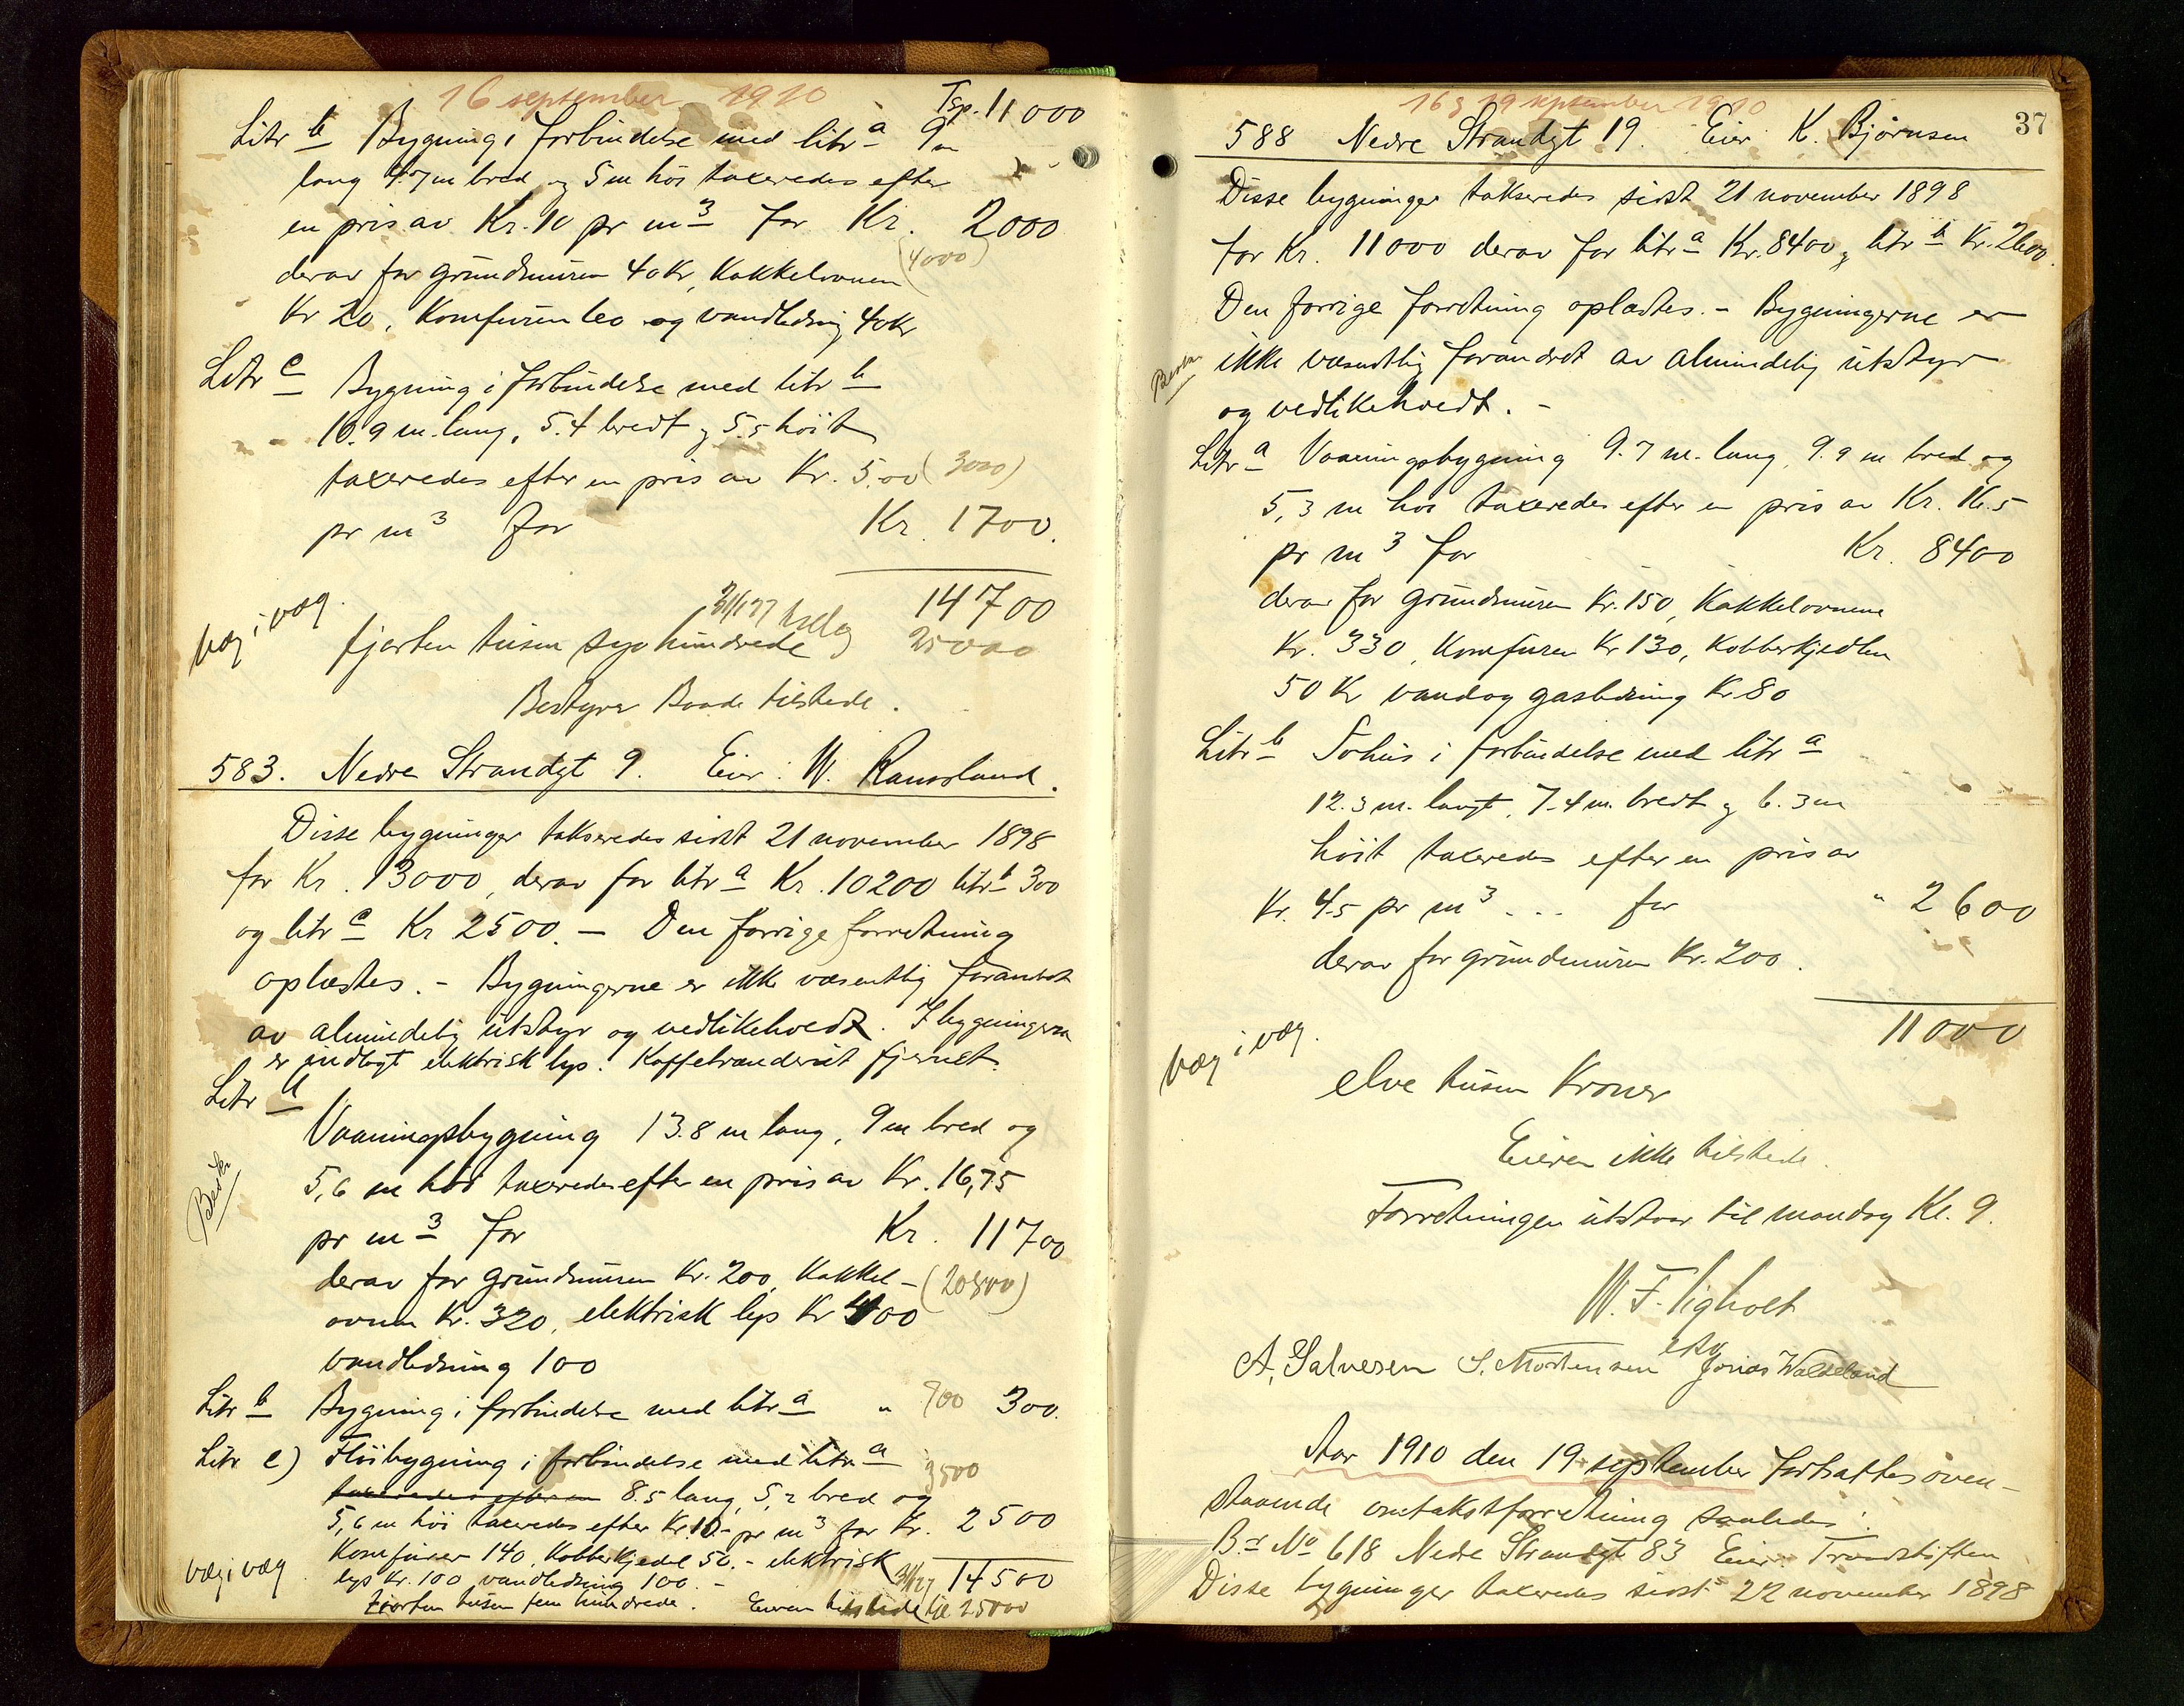 16 september 1910
Tsp. 11000
Litr b Bygning i forbindelse med litr a 9 m
lang 4.7 m bred og 5 m høi taxeredes efter
en pris av Kr. 10 pr m3 for Kr. 2000
(4000)
derav for grundmuren 40 Kr, Kakkelovnen
Kr 20, Komfuren 60 og vandledning 40 Kr
Litr c Bygning i forbindelse med litr b
10.9 m. lang, 5.4 bredt og 5.5 høit
taxeredes efter en pris av Kr. 5.00 (3000)
pr m3 for Kr. 1700.
14700
Væg i væg.
fjorten tusen syv hundrede 25000
Bestyrer Baade tilstede.
583. Nedre Strandgt 9. Eier: W. Ramsland.
Disse bygninger takseredes sidst 21 november 1898
for Kr. 13000, derav for litr a Kr. 10200 litr b 300
og litr c Kr 2500. – Den forrige forretning
oplæstes. – Bygningerne er ikke væsentlig forandret
av almindelig utstyr og vedlikeholdt. I bygningerne
er indlagt elektrisk lys. Kaffebrænderiet fjernet.
Litr a
Vaaningsbygning 13.8 m lang, 9 m bred og
5,6 m høi taxeredes efter en pris av Kr. 16,75
pr m3 for Kr. 11700
derav for grundmuren Kr. 200, Kakkel- (20800)
ovnen Kr. 320, elektrisk lys Kr 400
vandledning 100
Litr b Bygning i forbindelse med litr a " 700 300.
Litr c) Fløibygning i forbindelse med litr a 3500
taxeredes efter en 8.5 lang, 5,2 bred og
5,6 m høi taxeredes efter Kr. 10.- pr m3 for Kr. 2500
Komfurer 140, Kobberkjedel 50.- elektrisk
Væg i væg. lys Kr. 100 vandledning 100.- 31/1 27 14500
Fjorten tusen fem hundrede. Eieren tilstede 25000
16 og 19 september 1910
37
588 Nedre Strandgt 19. Eier K. Bjørnsen
Disse bygninger takseredes sidst 21 november 1898
for Kr. 11000 derav for litr a Kr. 8400 og litr b Kr. 2600.
Den forrige forretning oplæstes. – Bygningerne er
ikke væsentlig forandret av almindelig utstyr
og vedlikeholdt. –
Litr a Vaaningsbygning 9.7 m. lang, 9.9 m bred og
5,3 m høi taxeredes efter en pris av Kr. 16.5
pr m3 for Kr. 8400
derav for grundmuren Kr. 150, Kakkelovnene
Kr. 330, Komfuren Kr 130, Kobberkjedlen
50 Kr vand og gasledning Kr. 80
Litr b Sohus i forbindelse med litr a
12.3 m. langt, 7.4 m. bredt og 6.3 m
høit taxeredes efter en pris av
Kr. 4.5 pr m3 ... for " 2600
derav for grundmuren Kr. 200.
11000
Væg i væg.
elve tusen Kroner
Eieren ikke tilstede.
Forretningen utstaar til mandag Kl. 9.
W. F. Vigholt
A. Salvesen S. Mortensen Jonas Waldeland
Aar 1910 den 19 september fortsattes oven-
staaende omtakstforretning saaledes:
B.r No 618 Nedre Strandgt 83 Eier: Trandstiften
Disse bygninger taxeredes sidst 22 november 1898